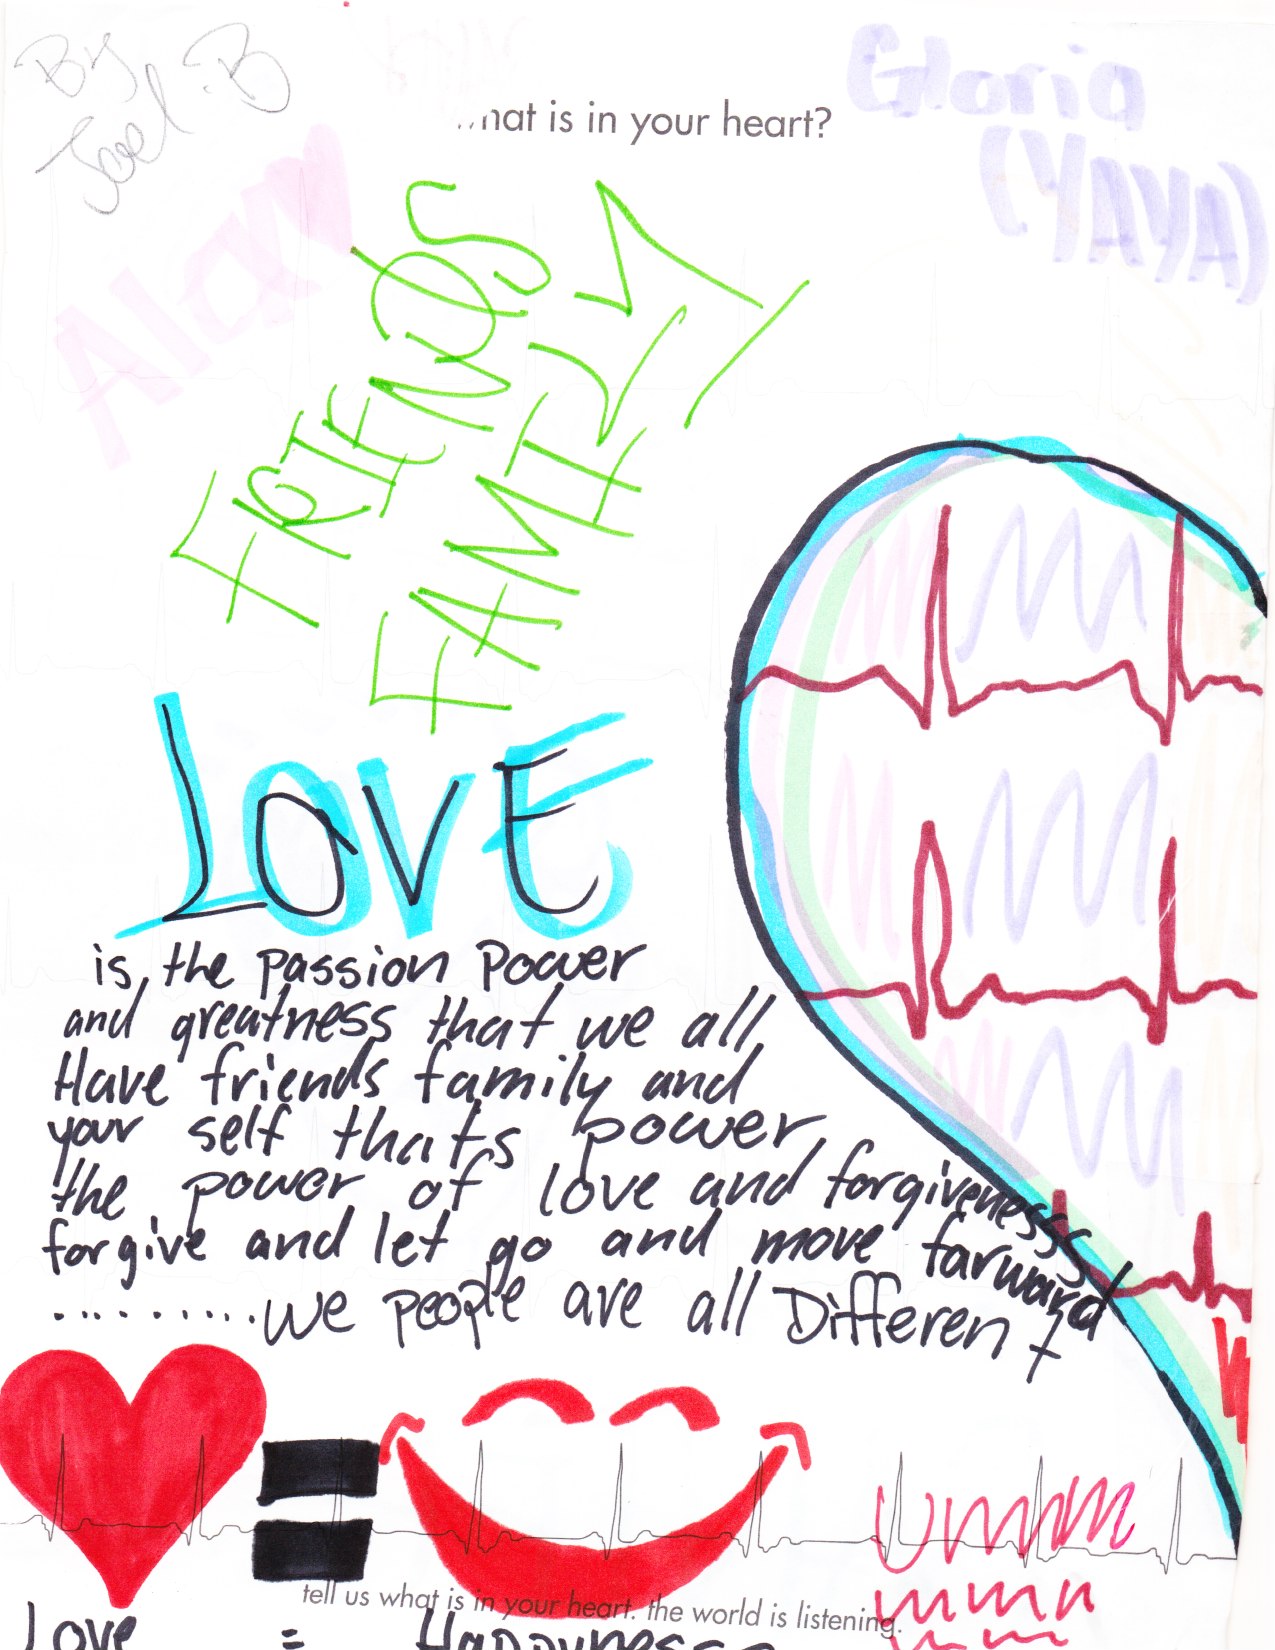 By
Joel .B
Gloria
(YAYA)
hat is in your heart?
Alan
FRIENDS
FAMILY
LOVE
is the passion Power
and greatness that we all
Have friends family and
your self thats power
the power of love and forgivenesss
forgive and let go and move farward
..........We people are all Different
tell us what is in your heart. the world is listening.
Love = Happyness